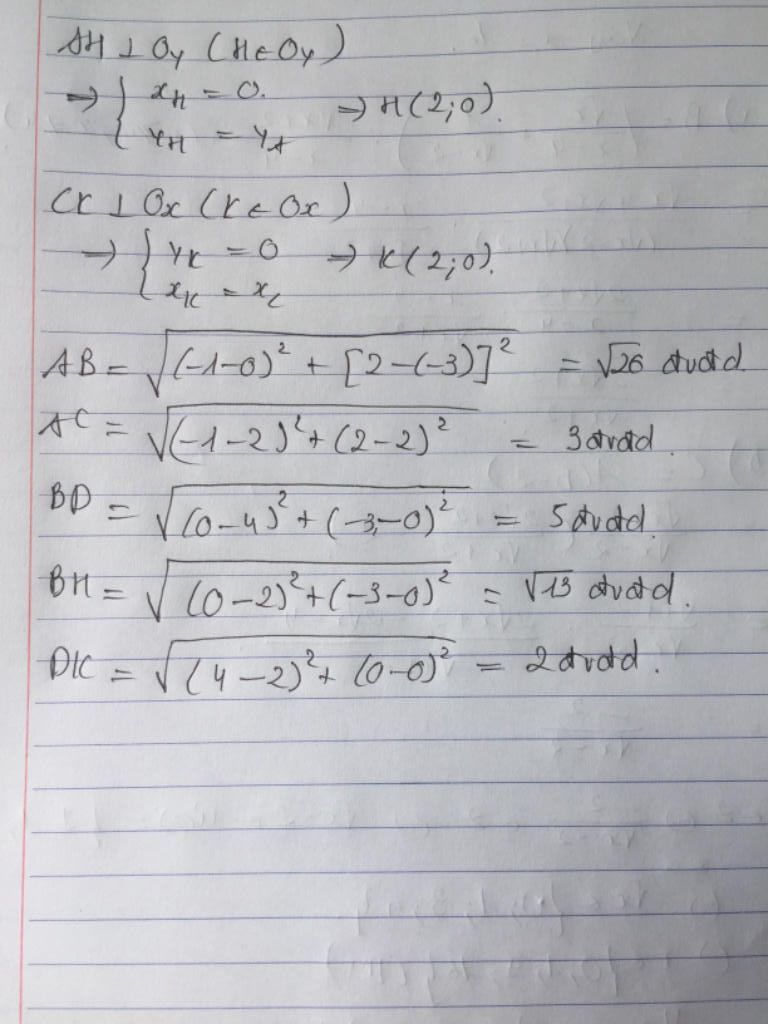 AH ⊥ Oy (H ∈ Oy)
⇒ { x_H = 0. y_H = y_A ⇒ H(2;0).
CK ⊥ Ox (K ∈ Ox)
⇒ { y_K = 0 x_K = x_C ⇒ K(2;0).
AB = √((-1-0)² + [2-(-3)]²) = √26 đvđd
AC = √((-1-2)² + (2-2)²) = 3 đvđd.
BD = √((0-4)² + (-3-0)²) = 5 đvđd.
BH = √((0-2)² + (-3-0)²) = √13 đvđd.
DK = √((4-2)² + (0-0)²) = 2 đvđd.